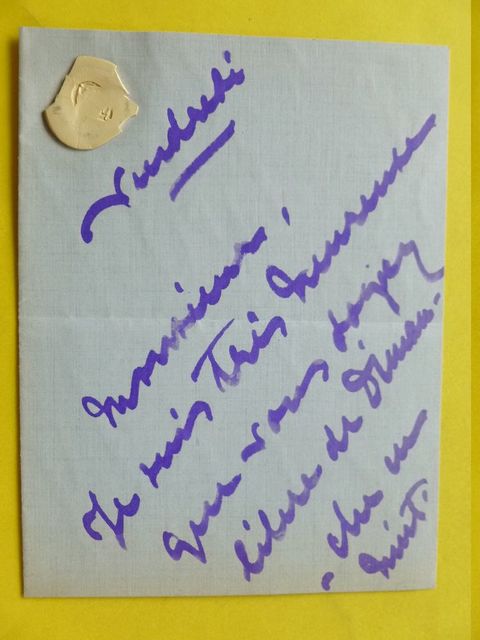 Vendredi
Monsieur,
Je suis très heureuse
que vous soyez
libre de Diman-
-che en
huit.